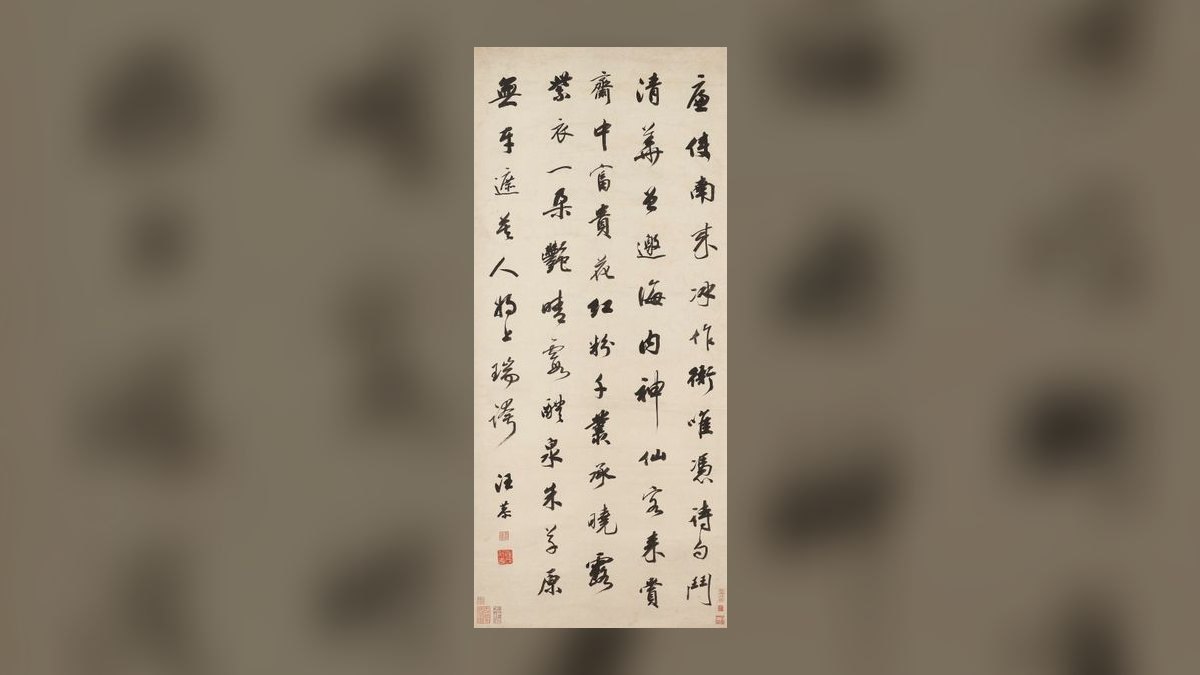 廉使南來冰作衙唯憑詩句鬥
清華曾邀海內神仙客來賞
齋中富貴花紅粉千叢承曉露
紫衣一朵艷晴霞醴泉朱草原
無遮莫人將上瑞誇
汪恭